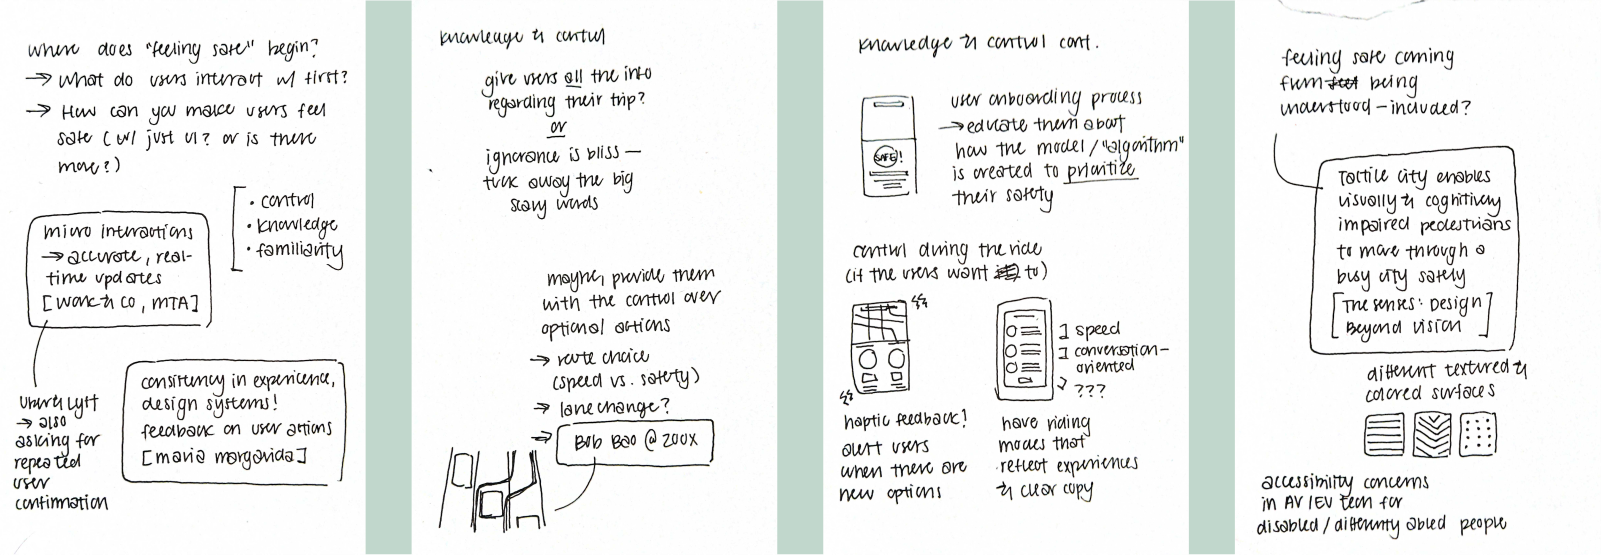 where does "feeling safe" begin?
→ What do users interact w/ first?
→ How can you make users feel
safe (w/ just UI? or is there
more?)
• control
• knowledge
• familiarity
micro interactions
→ accurate, real-
time updates
[Work & Co, MTA]
Uber & Lyft
→ also
asking for
repeated
user
confirmation
consistency in experience,
design systems!
feedback on user actions
[maria margarida]
knowledge & control
give users all the info
regarding their trip?
or
ignorance is bliss —
tuck away the big
scary words
maybe, provide them
with the control over
optional actions
→ route choice
(speed vs. safety)
→ lane change?
→ Bob Bao @ ZOOX
knowledge & control cont.
SAFE!
user onboarding process
→ educate them about
how the model / "algorithm"
is created to prioritize
their safety
control during the ride
(if the users want to)
speed
conversation-
oriented
???
haptic feedback!
alert users
when there are
new options
have riding
modes that
reflect experiences
& clear copy
feeling safe coming
from feel being
understood – included?
Tactile city enables
visually & cognitively
impaired pedestrians
to move through a
busy city safely
[The senses: Design
Beyond Vision]
different textured &
colored surfaces
accessibility concerns
in AV/EV tech for
disabled / differently abled people